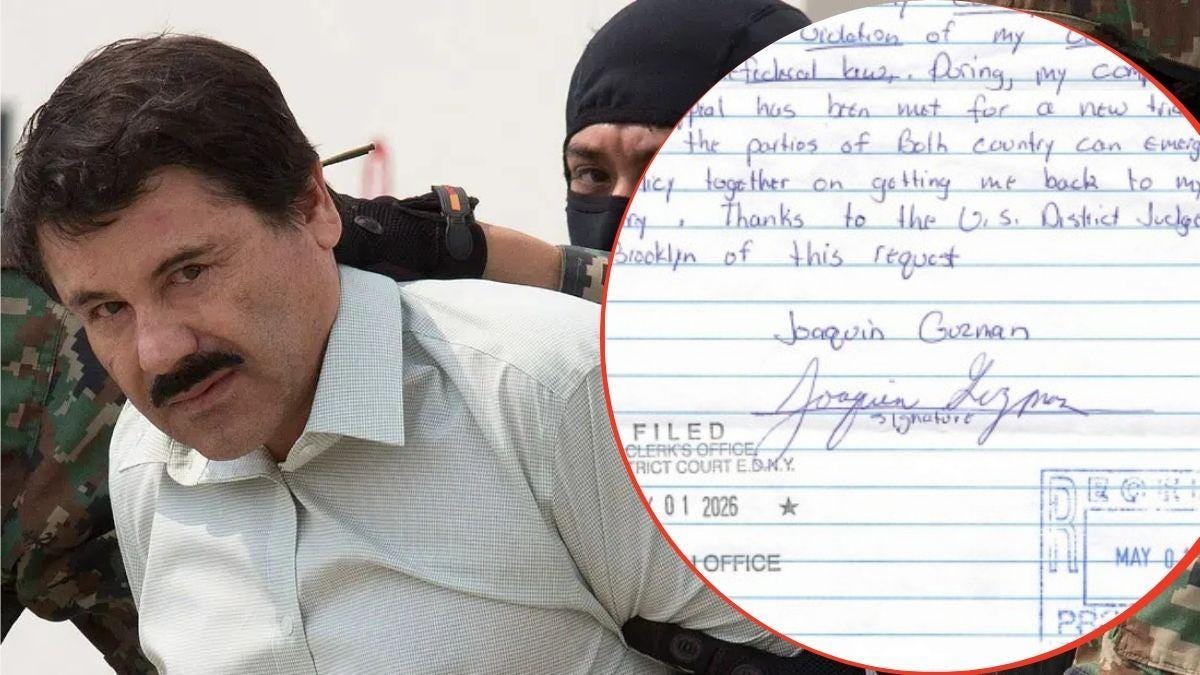 violation of my
federal law,. Doring, my
has been met for a new
the parties of Both country can
together on getting me back to my
. Thanks to the U.S. District
Brooklyn of this request
Joaquin Guzman
Joaquin Guzman
signature
FILED
CLERK'S OFFICE
COURT E.D.N.Y.
01 2026 ★
OFFICE
MAY